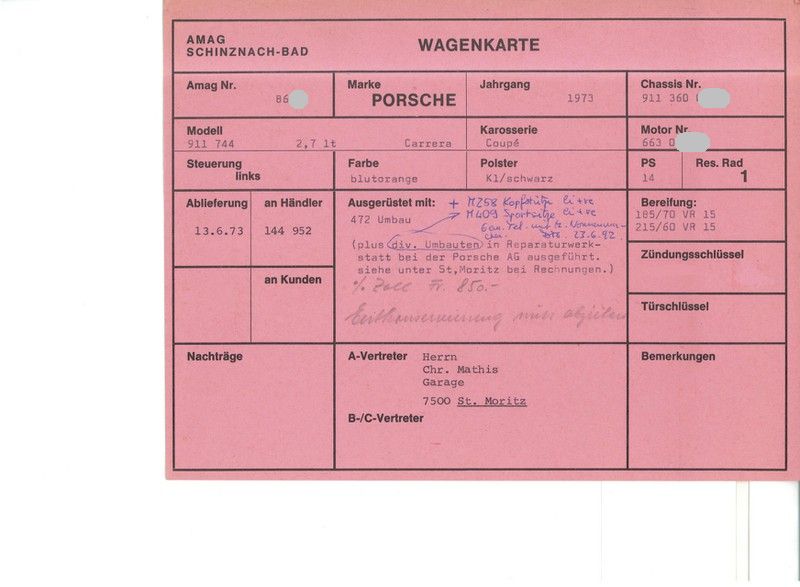 AMAG
SCHINZNACH-BAD
WAGENKARTE
Amag Nr.
86
Marke
PORSCHE
Jahrgang
1973
Chassis Nr.
911 360
Modell
911 744 2,7 lt Carrera
Karosserie
Coupé
Motor Nr.
663 0
Steuerung
links
Farbe
blutorange
Polster
Kl/schwarz
PS
14
Res. Rad
1
Ablieferung
13.6.73
an Händler
144 952
an Kunden
Ausgerüstet mit:
472 Umbau
+ M258 Kopfstütze li + re
M409 Sportsitze li + re
Gem. Tel. mit
23.6.92
(plus div. Umbauten in Reparaturwerk-
statt bei der Porsche AG ausgeführt.
siehe unter St,Moritz bei Rechnungen.)
% Zoll Fr. 850.-
Bereifung:
185/70 VR 15
215/60 VR 15
Zündungsschlüssel
Türschlüssel
Nachträge
A-Vertreter Herrn
Chr. Mathis
Garage
7500 St. Moritz
B-/C-Vertreter
Bemerkungen